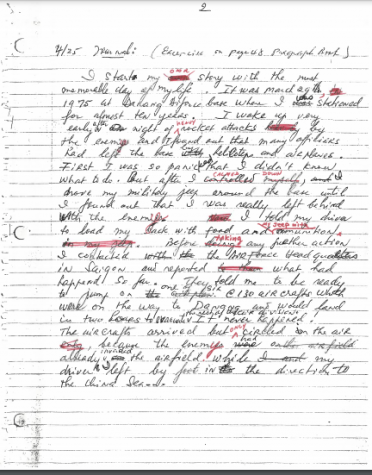 2
4/25 (Exercise on page 48. Paragraph Book)
I start my own story with the most
memorable day of my life. It was march 29th
1975 at Danang airforce base when I was stationed
for almost ten years. I wake up very
early after night of heavy rocket attacks by
the enemy and found out that many officers
had left the base by helicop and airplanes.
First I was so panic that I didn't know
what to do but after I controlled myself, I
drove my military jeep around the base until
I found out that I was really left behind
with the enemies. I told my driver
to load my jeep with food and munition.
Before taking any further action
I contacted the Air Force Headquarters
in Saigon and reported what had
happend so far. They told me to be ready
to jump on one C130 aircrafts which
were on the way to Danang and would land
in two hours It never happened.
The aircrafts arrived but only circled on the air
because the enemies had
already invaded the airfield. While my
driver & I left by foot in the direction to
the China Sea